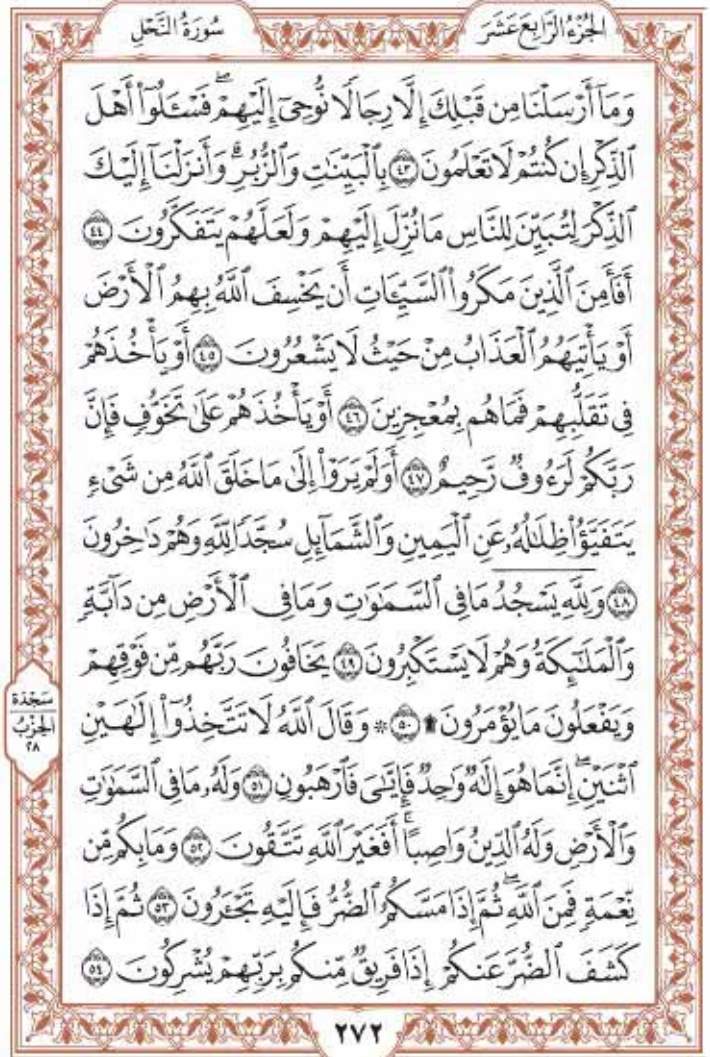 سُورَةُ النَّحْلِ
الجُزْءُ الرَّابِعَ عَشَرَ
وَمَآ أَرْسَلْنَا مِن قَبْلِكَ إِلَّا رِجَالًا نُّوحِىٓ إِلَيْهِمْ ۖ فَسْـَٔلُوٓا۟ أَهْلَ
ٱلذِّكْرِ إِن كُنتُمْ لَا تَعْلَمُونَ ﴿٤٣﴾ بِٱلْبَيِّنَـٰتِ وَٱلزُّبُرِ ۗ وَأَنزَلْنَآ إِلَيْكَ
ٱلذِّكْرَ لِتُبَيِّنَ لِلنَّاسِ مَا نُزِّلَ إِلَيْهِمْ وَلَعَلَّهُمْ يَتَفَكَّرُونَ ﴿٤٤﴾
أَفَأَمِنَ ٱلَّذِينَ مَكَرُوا۟ ٱلسَّيِّـَٔاتِ أَن يَخْسِفَ ٱللَّهُ بِهِمُ ٱلْأَرْضَ
أَوْ يَأْتِيَهُمُ ٱلْعَذَابُ مِنْ حَيْثُ لَا يَشْعُرُونَ ﴿٤٥﴾ أَوْ يَأْخُذَهُمْ
فِى تَقَلُّبِهِمْ فَمَا هُم بِمُعْجِزِينَ ﴿٤٦﴾ أَوْ يَأْخُذَهُمْ عَلَىٰ تَخَوُّفٍ فَإِنَّ
رَبَّكُمْ لَرَءُوفٌ رَّحِيمٌ ﴿٤٧﴾ أَوَلَمْ يَرَوْا۟ إِلَىٰ مَا خَلَقَ ٱللَّهُ مِن شَىْءٍ
يَتَفَيَّؤُا۟ ظِلَـٰلُهُۥ عَنِ ٱلْيَمِينِ وَٱلشَّمَآئِلِ سُجَّدًا لِّلَّهِ وَهُمْ دَٰخِرُونَ
﴿٤٨﴾ وَلِلَّهِ يَسْجُدُ مَا فِى ٱلسَّمَـٰوَٰتِ وَمَا فِى ٱلْأَرْضِ مِن دَآبَّةٍ
وَٱلْمَلَـٰٓئِكَةُ وَهُمْ لَا يَسْتَكْبِرُونَ ﴿٤٩﴾ يَخَافُونَ رَبَّهُم مِّن فَوْقِهِمْ
وَيَفْعَلُونَ مَا يُؤْمَرُونَ ۩ ﴿٥٠﴾ ۞ وَقَالَ ٱللَّهُ لَا تَتَّخِذُوٓا۟ إِلَـٰهَيْنِ
ٱثْنَيْنِ ۖ إِنَّمَا هُوَ إِلَـٰهٌ وَٰحِدٌ ۖ فَإِيَّـٰىَ فَٱرْهَبُونِ ﴿٥١﴾ وَلَهُۥ مَا فِى ٱلسَّمَـٰوَٰتِ
وَٱلْأَرْضِ وَلَهُ ٱلدِّينُ وَاصِبًا ۚ أَفَغَيْرَ ٱللَّهِ تَتَّقُونَ ﴿٥٢﴾ وَمَا بِكُم مِّن
نِّعْمَةٍ فَمِنَ ٱللَّهِ ۖ ثُمَّ إِذَا مَسَّكُمُ ٱلضُّرُّ فَإِلَيْهِ تَجْـَٔرُونَ ﴿٥٣﴾ ثُمَّ إِذَا
كَشَفَ ٱلضُّرَّ عَنكُمْ إِذَا فَرِيقٌ مِّنكُم بِرَبِّهِمْ يُشْرِكُونَ ﴿٥٤﴾
سَجْدَة
الحِزْبُ
٢٨
٢٧٢